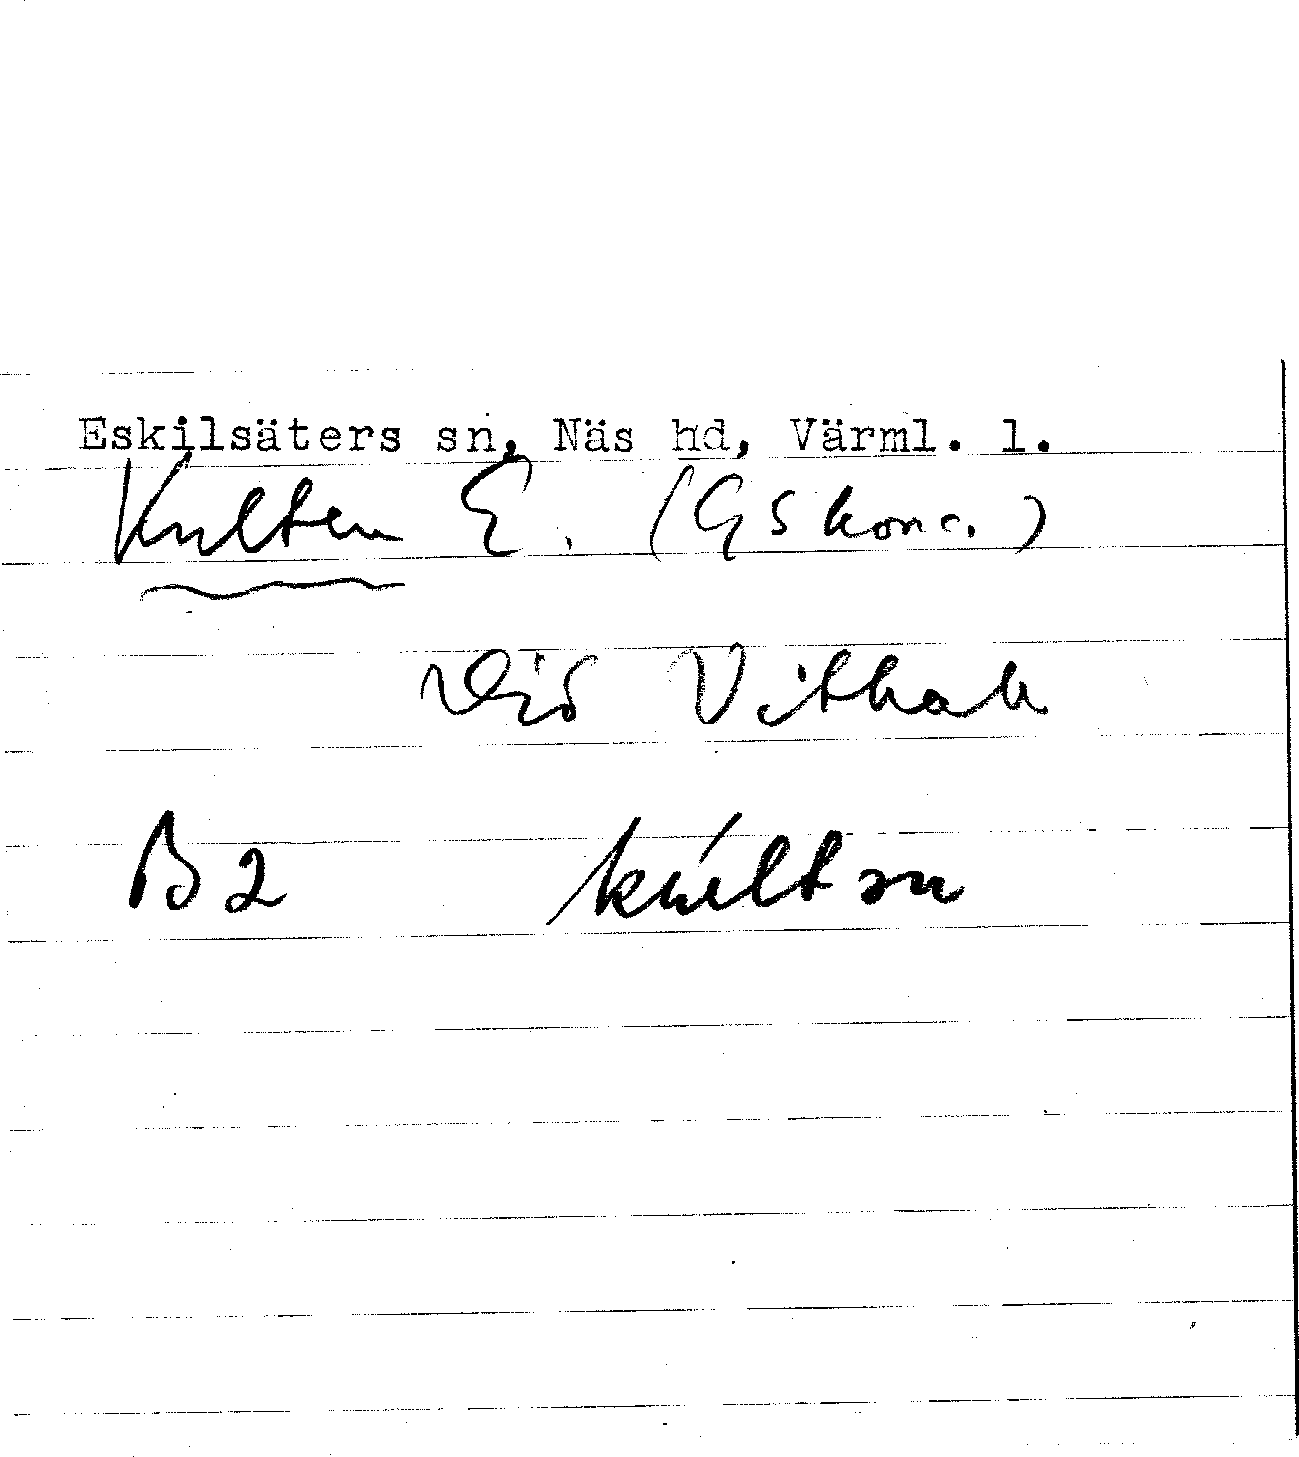 Eskilsäters sn, Näs hd, Värml. l.
Kulten E. (GS konc.)
vid Vithall
B2 kúltən